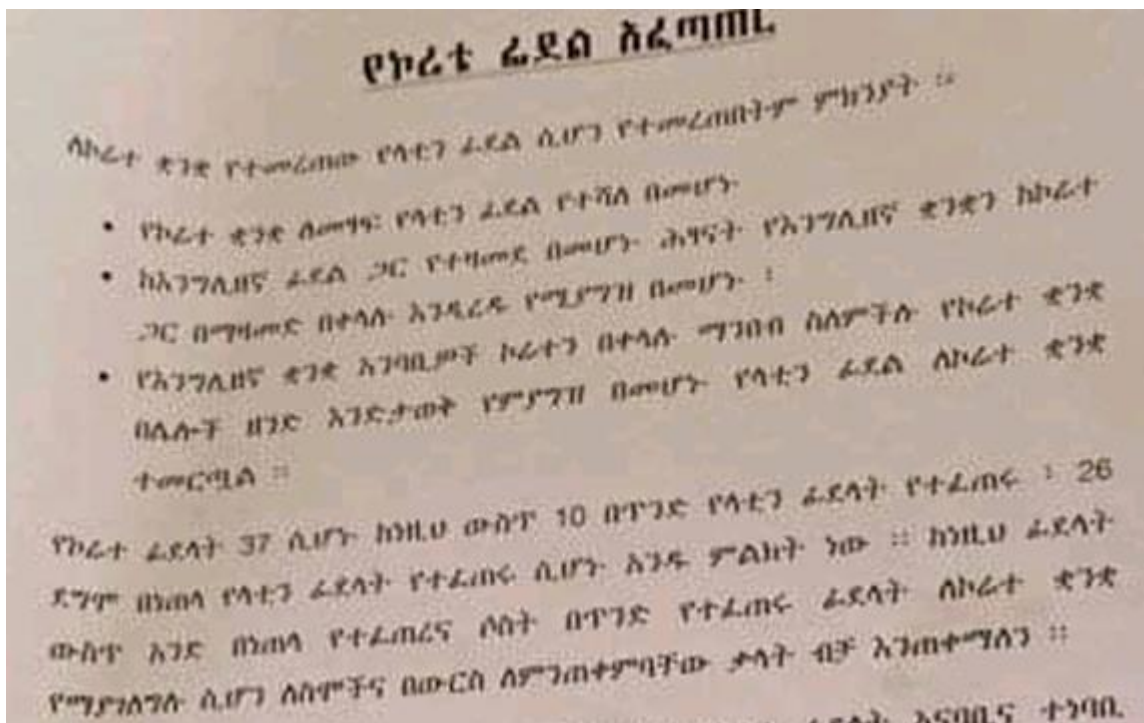 የኮሬቴ ፊደል አፈጣጠር
ለኮሬተ ቋንቋ የተመረጠው የላቲን ፊደል ሲሆን የተመረጠበትም ምክንያት ።
• የኮሬተ ቋንቋ ለመፃፍ የላቲን ፊደል የተሻለ በመሆኑ
• ከእንግሊዘኛ ፊደል ጋር የተዛመደ በመሆኑ ሕፃናት የእንግሊዘኛ ቋንቋን ከኮሬተ
ጋር በማዛመድ በቀላሉ እንዲረዱ የሚያግዝ በመሆኑ ፡
• የእንግሊዘኛ ቋንቋ አንባቢዎች ኮሬተን በቀላሉ ማንበብ ስለምችሉ የኮሬተ ቋንቋ
በሌሎች ዘንድ እንድታወቅ የምያግዝ በመሆኑ የላቲን ፊደል ለኮሬተ ቋንቋ
ተመርጧል ።
የኮሬተ ፊደላት 37 ሲሆኑ ከነዚህ ውስጥ 10 በጥንድ የላቲን ፊደላት የተፈጠሩ ፡ 26
ደግሞ በነጠላ የላቲን ፊደላት የተፈጠሩ ሲሆኑ አንዱ ምልክት ነው ። ከነዚህ ፊደላት
ውስጥ አንድ በነጠላ የተፈጠረና ሶስት በጥንድ የተፈጠሩ ፊደላት ለኮሬተ ቋንቋ
የማያገለግሉ ሲሆን ለስሞችና በውርስ ለምንጠቀምባቸው ቃላት ብቻ እንጠቀማለን ።
ፊደላት አናባቢና ተነባቢ